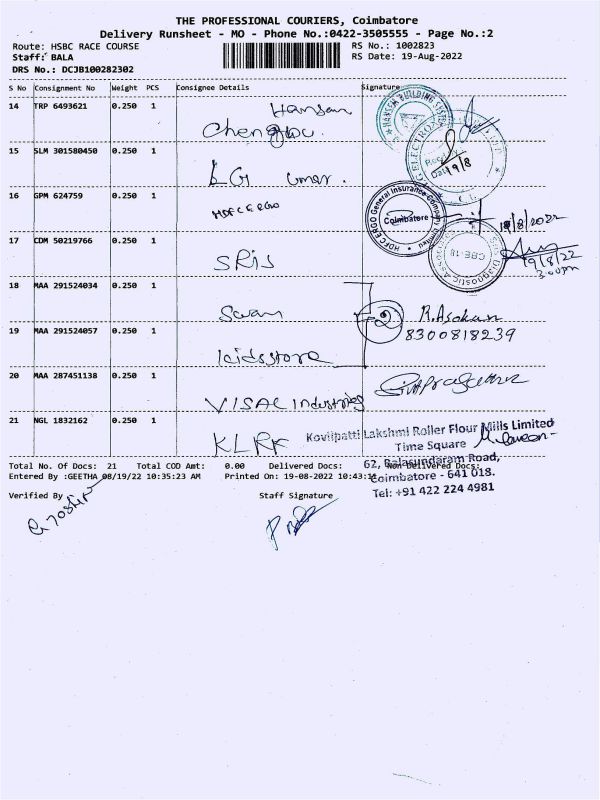 THE PROFESSIONAL COURIERS, Coimbatore
Delivery Runsheet - MO - Phone No.:0422-3505555 - Page No.:2
Route: HSBC RACE COURSE RS No.: 1002823
Staff: BALA RS Date: 19-Aug-2022
DRS No.: DCJB100282302
S No Consignment No Weight PCS Consignee Details Signature
14 TRP 6493621 0.250 1 Hansan
HANSAM BUILDING
15 SLM 301580450 0.250 1 LG Umar.
LG ELECTRON
19/8
16 GPM 624759 0.250 1 HDFC ERGO
HDFC ERGO General Insurance Company Limited
Coimbatore
19/8/2022
17 CDM 50219766 0.250 1 SRIS
Diagnostic
CBE-18
19/8/22
3:00pm
18 MAA 291524034 0.250 1 Swan
2 R.Asokan
19 MAA 291524057 0.250 1 kidsstore
8300818239
20 MAA 287451138 0.250 1 VISAL Industries
21 NGL 1832162 0.250 1 KLRF
Kovilpatti Lakshmi Roller Flour Mills Limited
Time Square
62, Balasundaram Road,
Coimbatore - 641 018.
Tel: +91 422 224 4981
Total No. Of Docs: 21 Total COD Amt: 0.00 Delivered Docs: Non Delivered Docs:
Entered By :GEETHA 08/19/22 10:35:23 AM Printed On: 19-08-2022 10:43:
Verified By Staff Signature